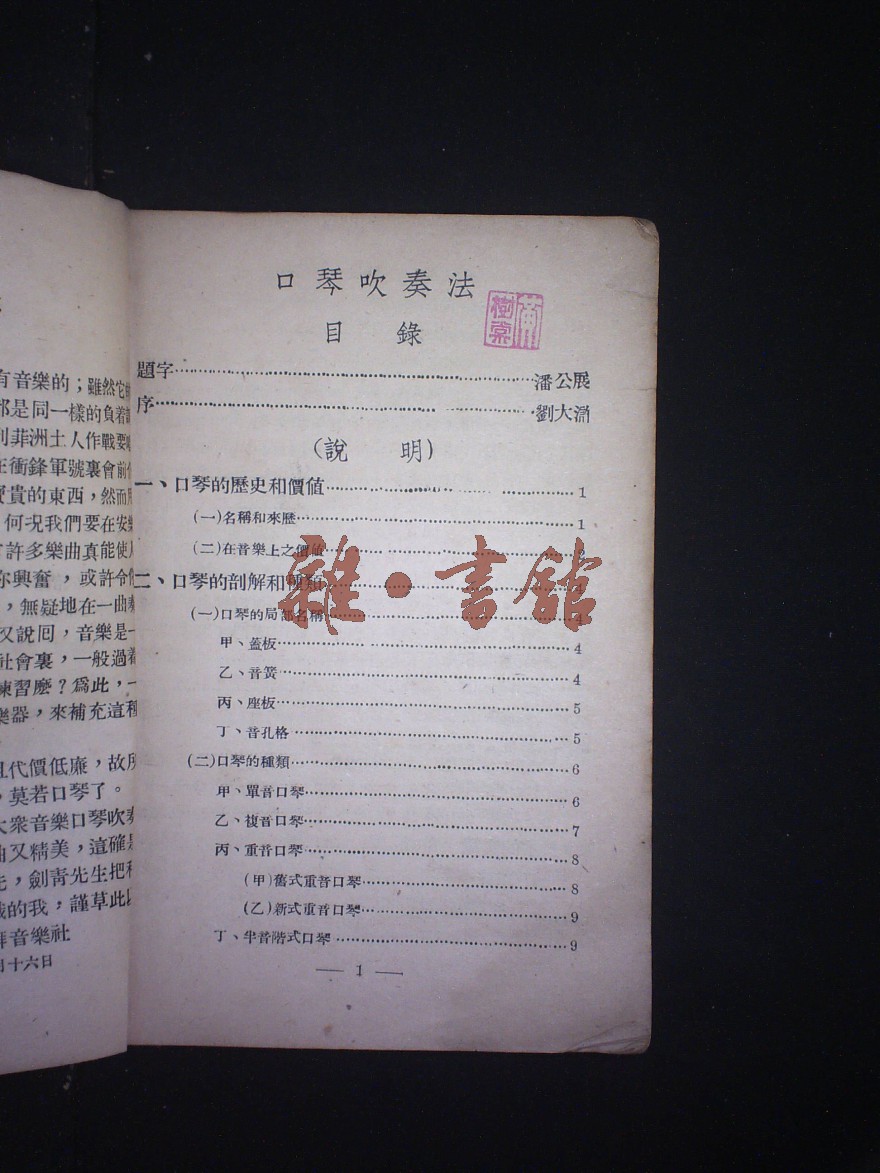 口琴吹奏法
目錄
題字……潘公展
序……劉大
(說明)
一、口琴的歷史和價値……1
(一)名稱和來歷……1
(二)在音樂上之價値……3
二、口琴的剖解和種類……4
(一)口琴的局部名稱……4
甲、蓋板……4
乙、音簧……4
丙、座板……5
丁、音孔格……5
(二)口琴的種類……6
甲、單音口琴……6
乙、複音口琴……7
丙、重音口琴……8
(甲)舊式重音口琴……8
(乙)新式重音口琴……9
丁、半音階式口琴……9
— 1 —
雜·書館
樹棠
有音樂的；雖然它
都是同一樣的負着
到菲洲土人作戰要
在衝鋒軍號裏會前
寶貴的東西，然而
何况我們要在安
許多樂曲真能使人
你興奮，或許令
，無疑地在一曲
又說囘，音樂是一
社會裏，一般過着
練習麽？爲此，一
樂器，來補充這種
且代價低廉，故所
，莫若口琴了。
大衆音樂口琴吹奏
曲又精美，這確是
先，劍靑先生把
我的我，謹草此以
音樂社
月十六日